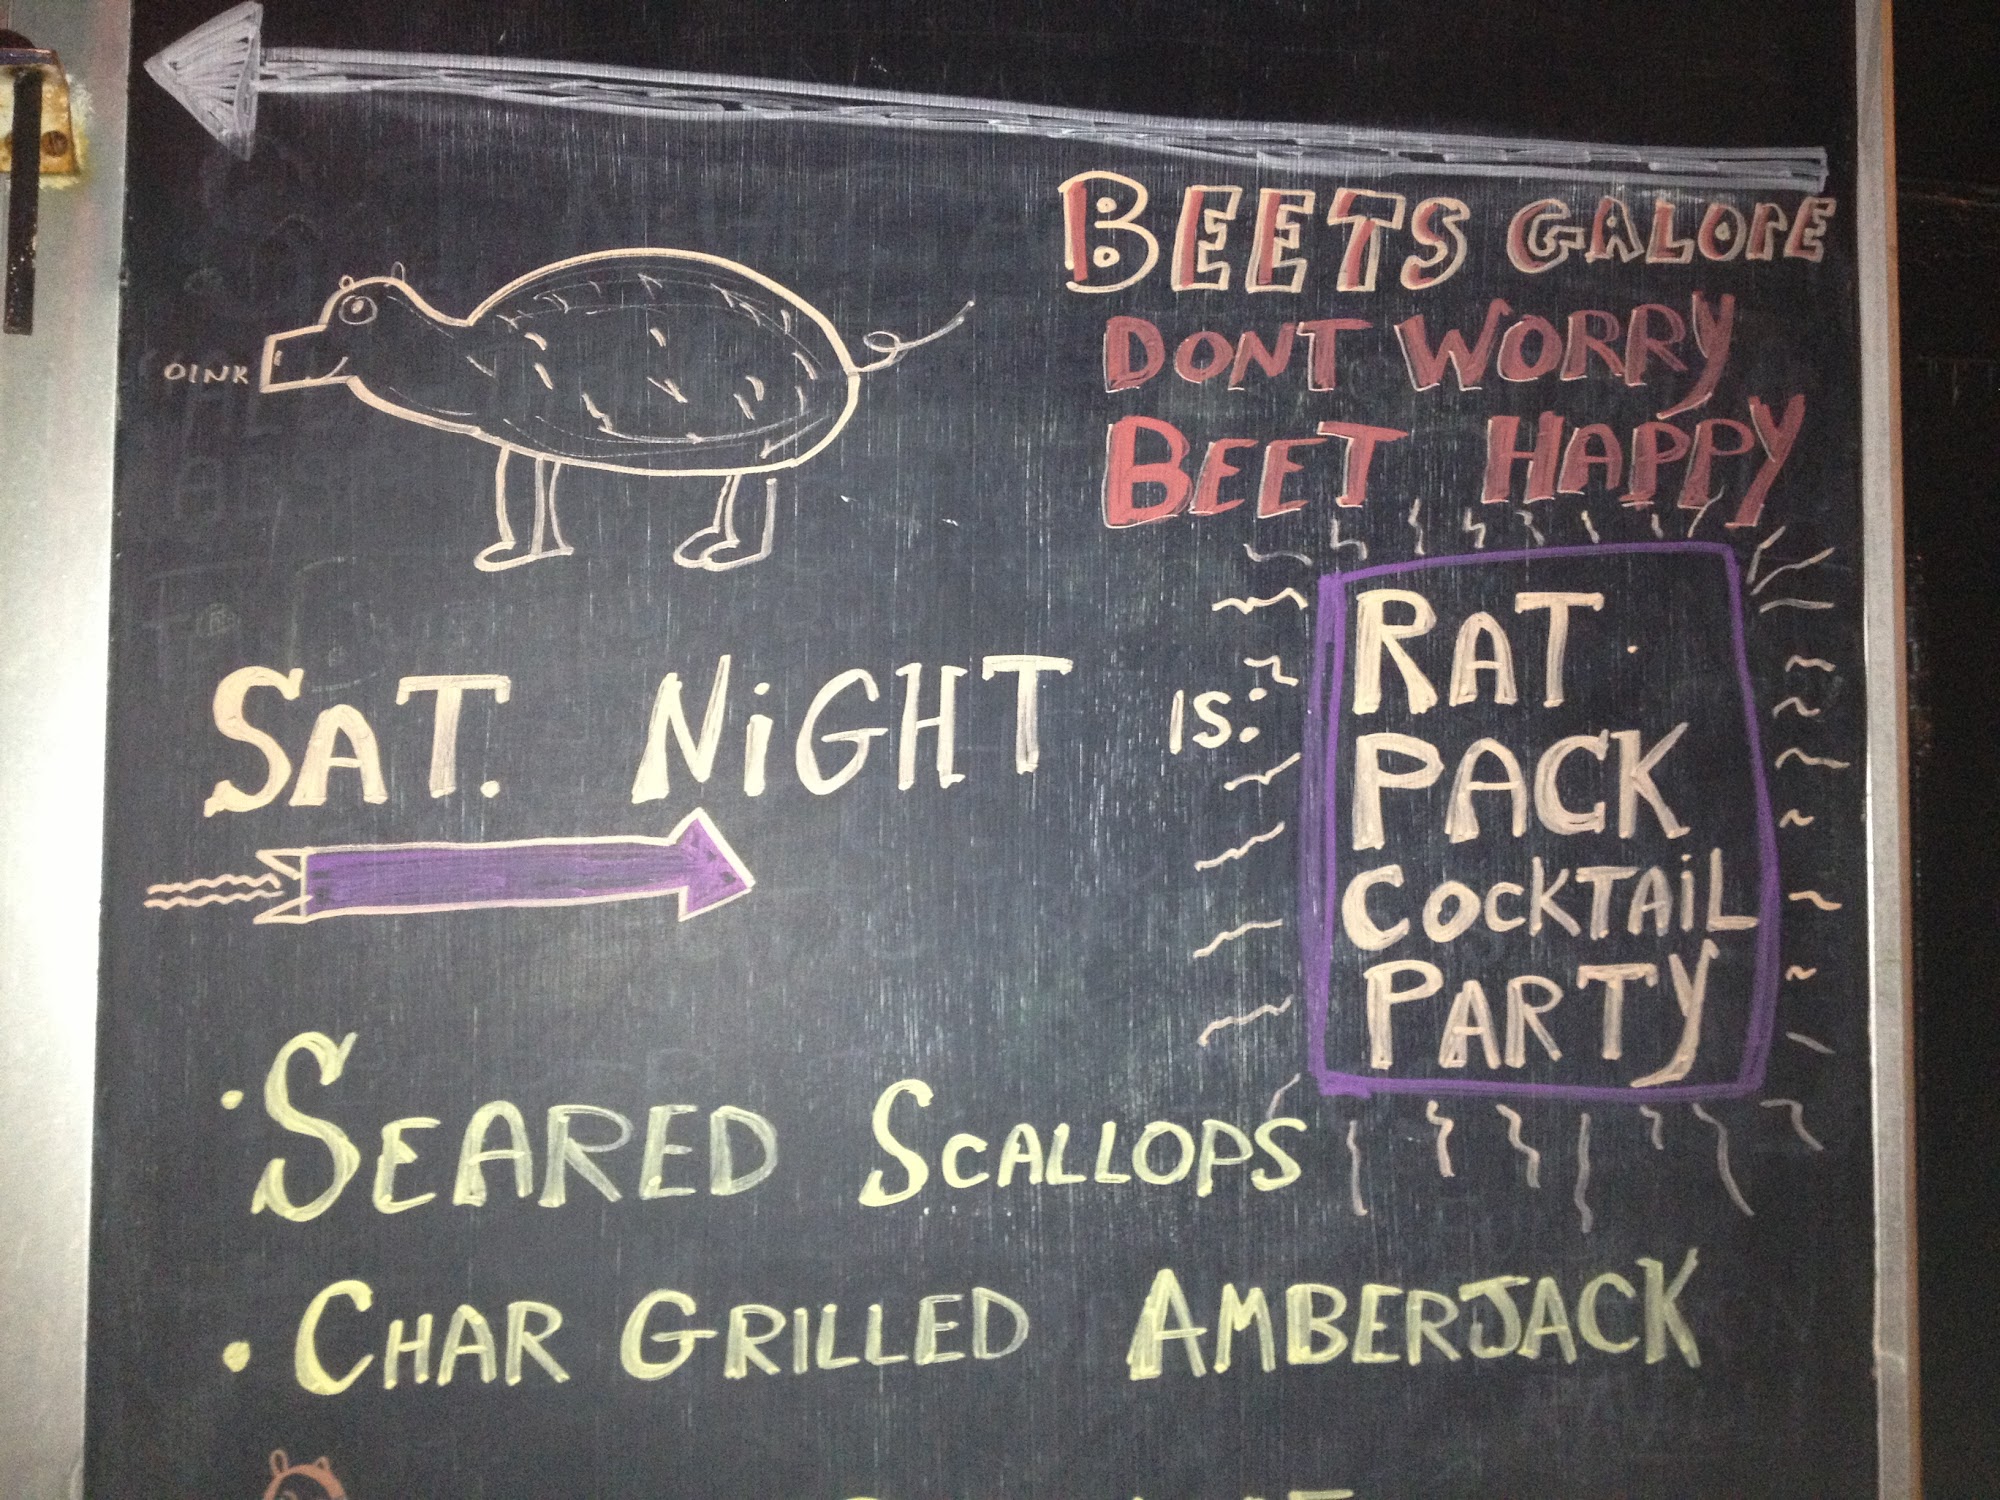 BEETS GALORE
DONT WORRY
BEET HAPPY
OINK
SAT. NiGHT IS:
RAT
PACK
COCKTAiL
PARTY
• SEARED SCALLOPS
• CHAR GRILLED AMBERJACK